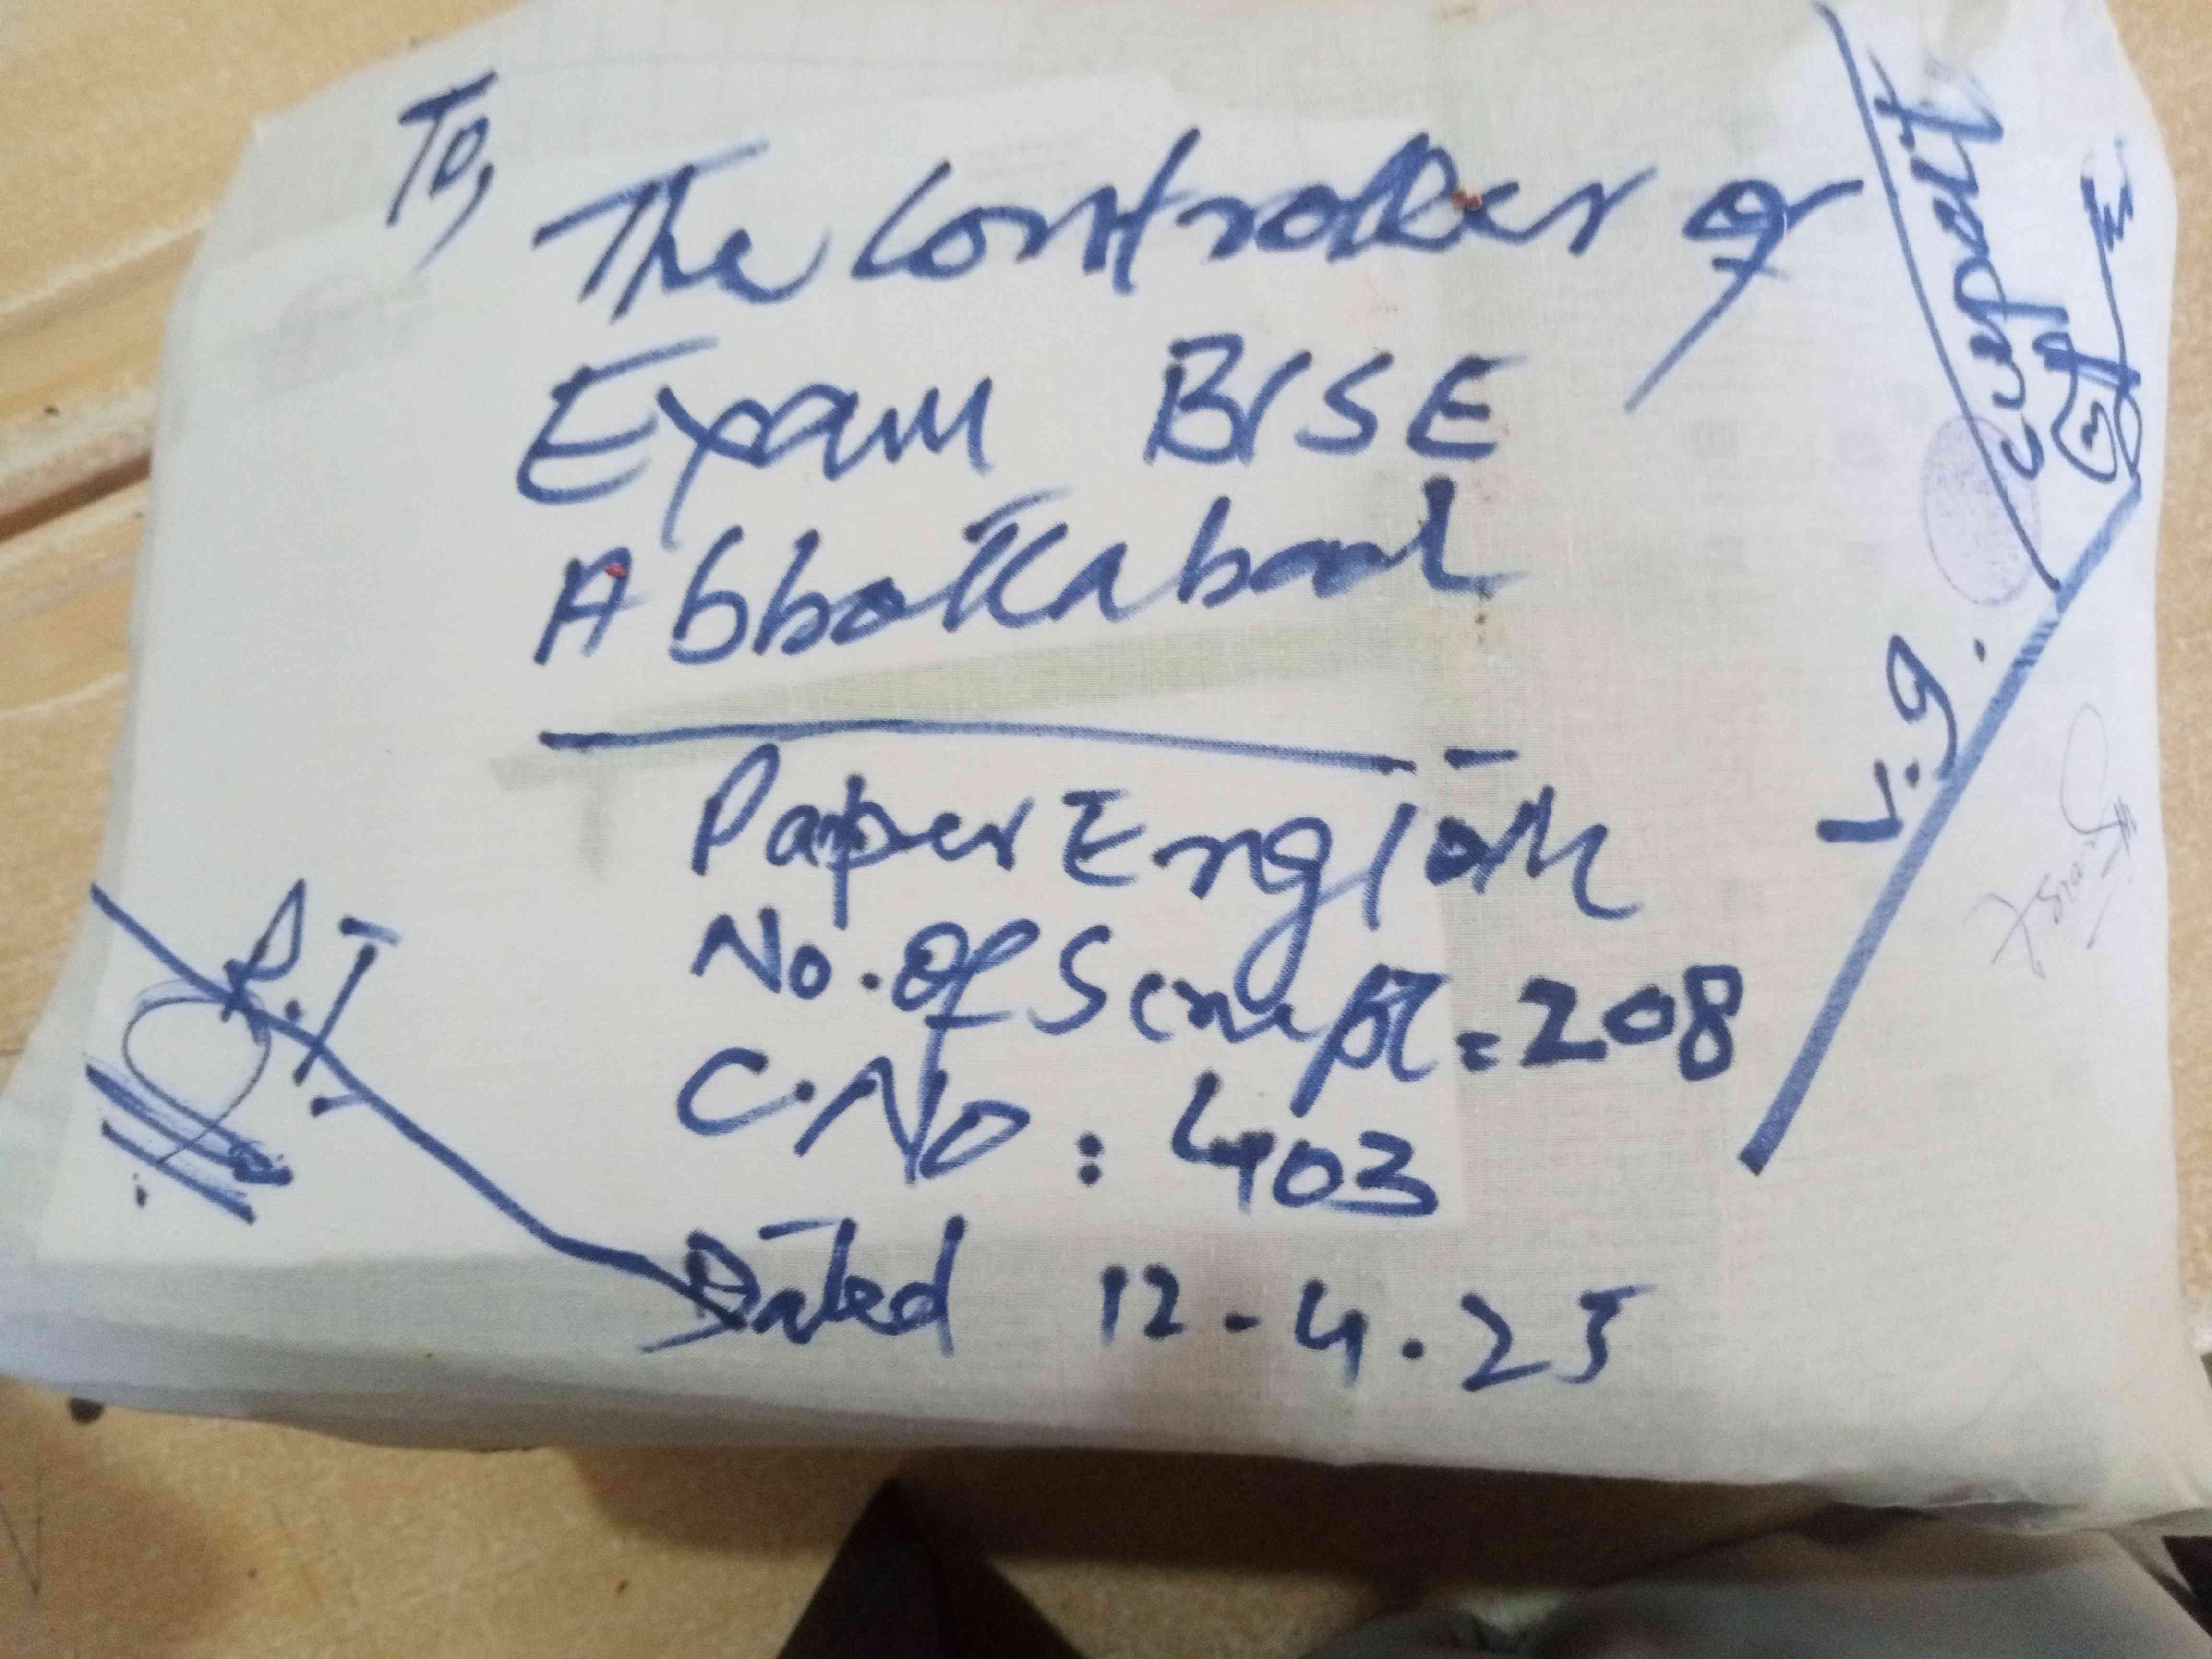 To,
The Controller of
Exam BISE
Abbottabad
Paper English
No. Of Script = 208
C.No : 403
Dated 12-4.25
R.I
Supdt